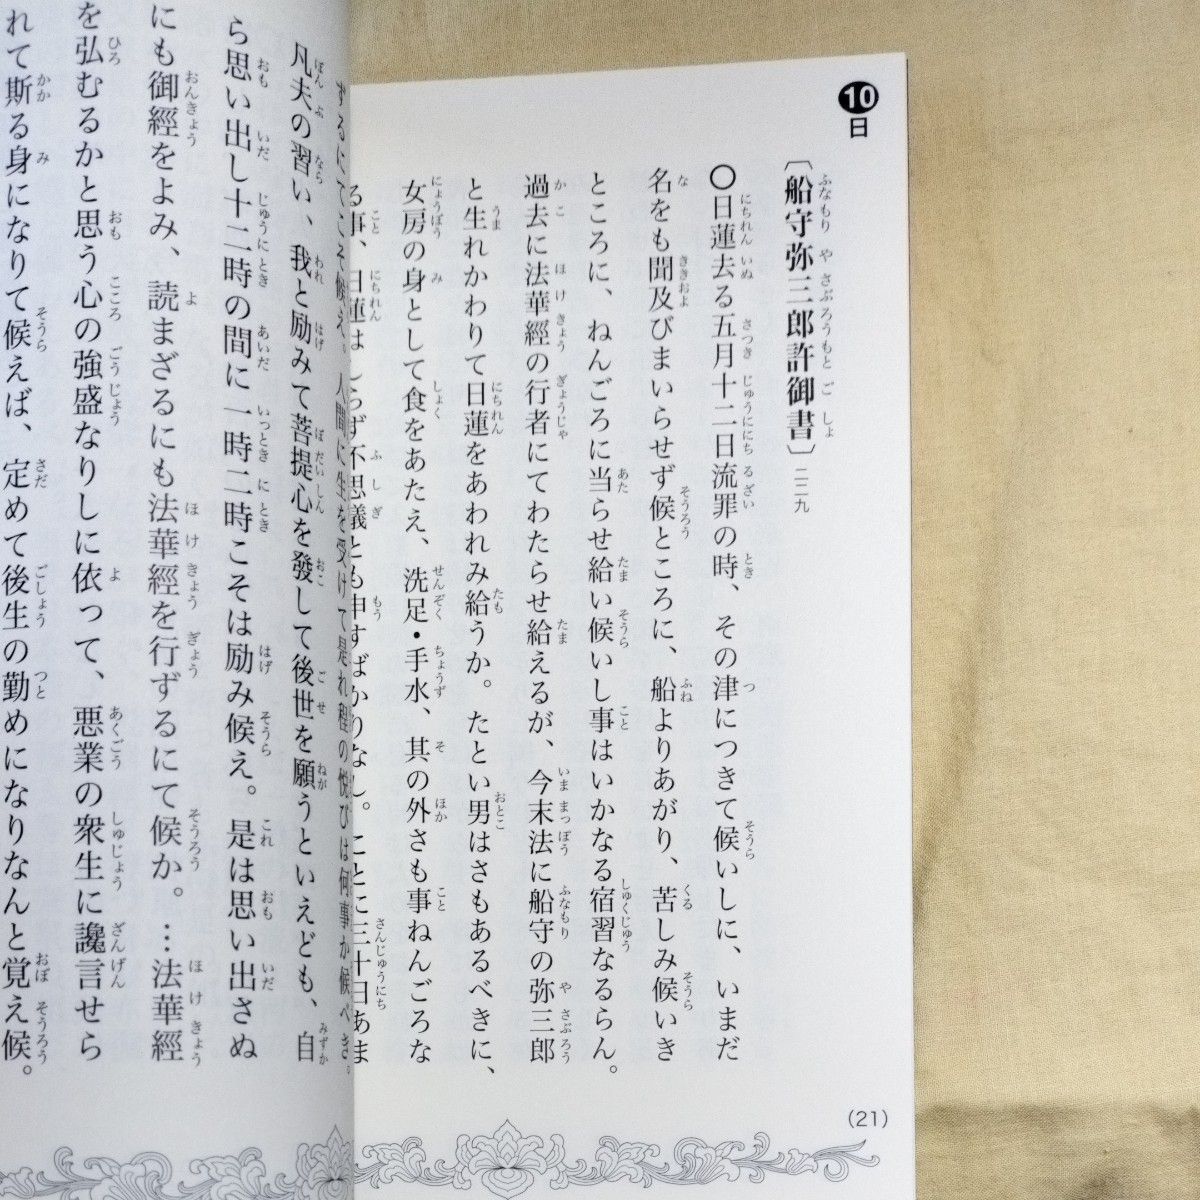 10日
〔船守弥三郎許御書〕二二九
〇日蓮去る五月十二日流罪の時、その津につきて候いしに、いまだ
名をも聞及びまいらせず候ところに、船よりあがり、苦しみ候いき
ところに、ねんごろに当らせ給い候いし事はいかなる宿習なるらん。
過去に法華經の行者にてわたらせ給えるが、今末法に船守の弥三郎
と生れかわりて日蓮をあわれみ給うか。たとい男はさもあるべきに、
女房の身として食をあたえ、洗足・手水、其の外さも事ねんごろな
る事、日蓮はしらず不思議とも申すばかりなし。ことに三十日あま
(21)
ずるにてこそ候え。人間に生を受けて是れ程の悦びは何事か候べき。
凡夫の習い、我と励みて菩提心を發して後世を願うといえども、自
ら思い出し十二時の間に一時二時こそは励み候え。是は思い出さぬ
にも御經をよみ、読まざるにも法華經を行ずるにて候か。…法華經
を弘むるかと思う心の強盛なりしに依って、悪業の衆生に讒言せら
れて斯る身になりて候えば、定めて後生の勤めになりなんと覚え候。